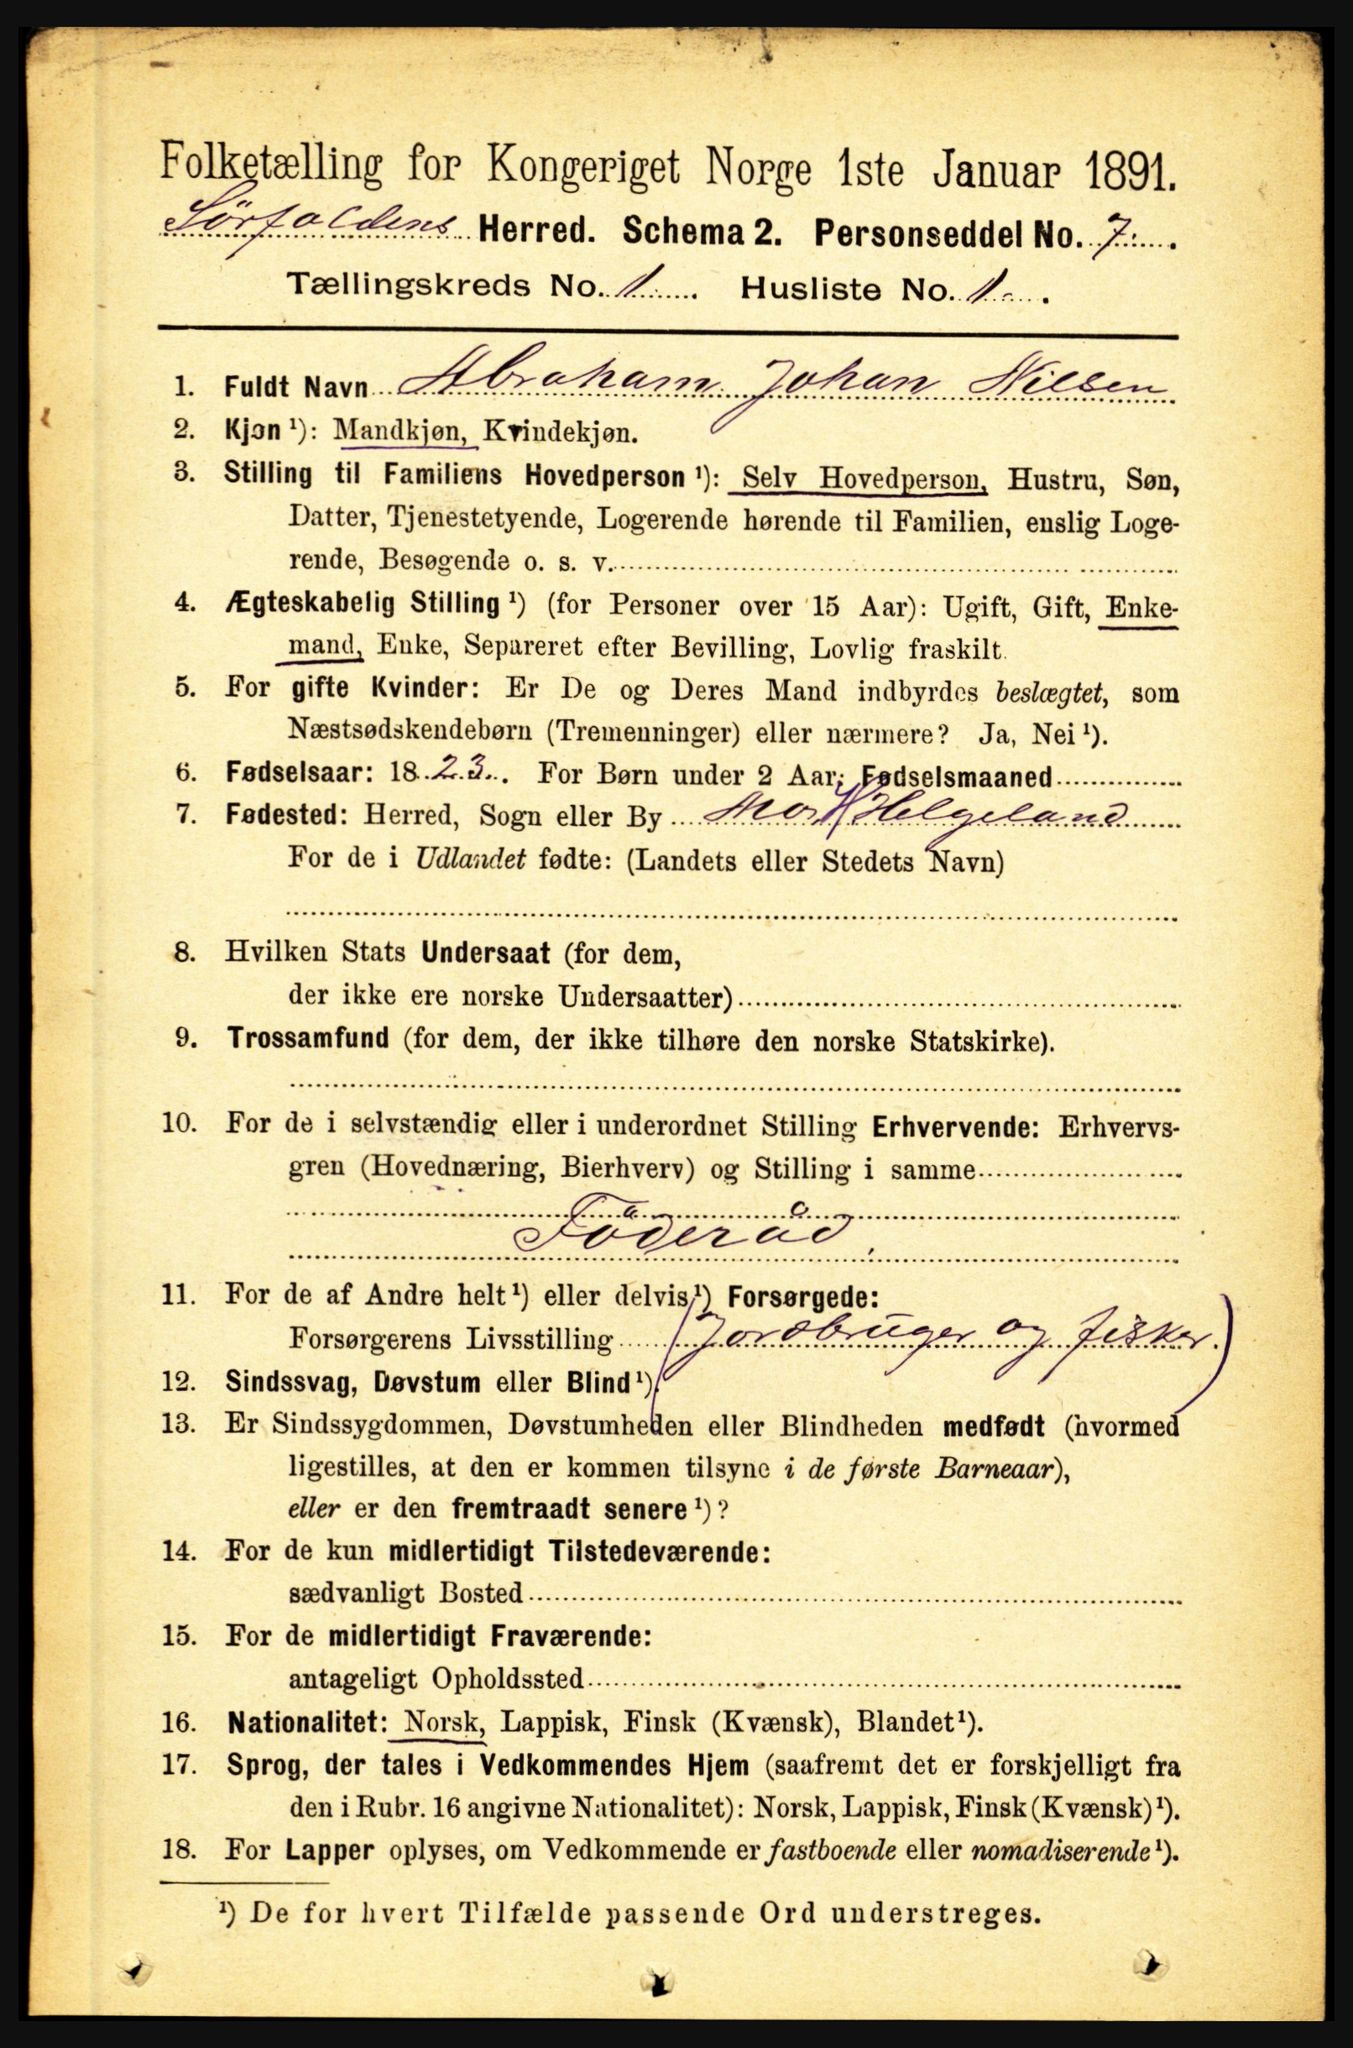 Folketælling for Kongeriget Norge 1ste Januar 1891.
Sörfoldens Herred. Schema 2. Personseddel No. 7.
Tællingskreds No. 1. Husliste No. 1.
1. Fuldt Navn Abraham Johan Nilsen
2. Kjøn ¹): Mandkjøn, Kvindekjøn.
3. Stilling til Familiens Hovedperson ¹): Selv Hovedperson, Hustru, Søn,
Datter, Tjenestetyende, Logerende hørende til Familien, enslig Loge-
rende, Besøgende o. s. v.
4. Ægteskabelig Stilling ¹) (for Personer over 15 Aar): Ugift, Gift, Enke-
mand, Enke, Separeret efter Bevilling, Lovlig fraskilt.
5. For gifte Kvinder: Er De og Deres Mand indbyrdes beslægtet, som
Næstsødskendebørn (Tremenninger) eller nærmere? Ja, Nei ¹).
6. Fødselsaar: 1823. For Børn under 2 Aar: Fødselsmaaned
7. Fødested: Herred, Sogn eller By Mo Helgeland
For de i Udlandet fødte: (Landets eller Stedets Navn)
8. Hvilken Stats Undersaat (for dem,
der ikke ere norske Undersaatter)
9. Trossamfund (for dem, der ikke tilhøre den norske Statskirke).
10. For de i selvstændig eller i underordnet Stilling Erhvervende: Erhvervs-
gren (Hovednæring, Bierhverv) og Stilling i samme
Föderåd.
11. For de af Andre helt ¹) eller delvis ¹) Forsørgede:
Forsørgerens Livsstilling (Jordbruger og fisker.)
12. Sindssvag, Døvstum eller Blind ¹).
13. Er Sindssygdommen, Døvstumheden eller Blindheden medfødt (hvormed
ligestilles, at den er kommen tilsyne i de første Barneaar),
eller er den fremtraadt senere ¹)?
14. For de kun midlertidigt Tilstedeværende:
sædvanligt Bosted
15. For de midlertidigt Fraværende:
antageligt Opholdssted
16. Nationalitet: Norsk, Lappisk, Finsk (Kvænsk), Blandet ¹).
17. Sprog, der tales i Vedkommendes Hjem (saafremt det er forskjelligt fra
den i Rubr. 16 angivne Nationalitet): Norsk, Lappisk, Finsk (Kvænsk) ¹).
18. For Lapper oplyses, om Vedkommende er fastboende eller nomadiserende ¹).
¹) De for hvert Tilfælde passende Ord understreges.